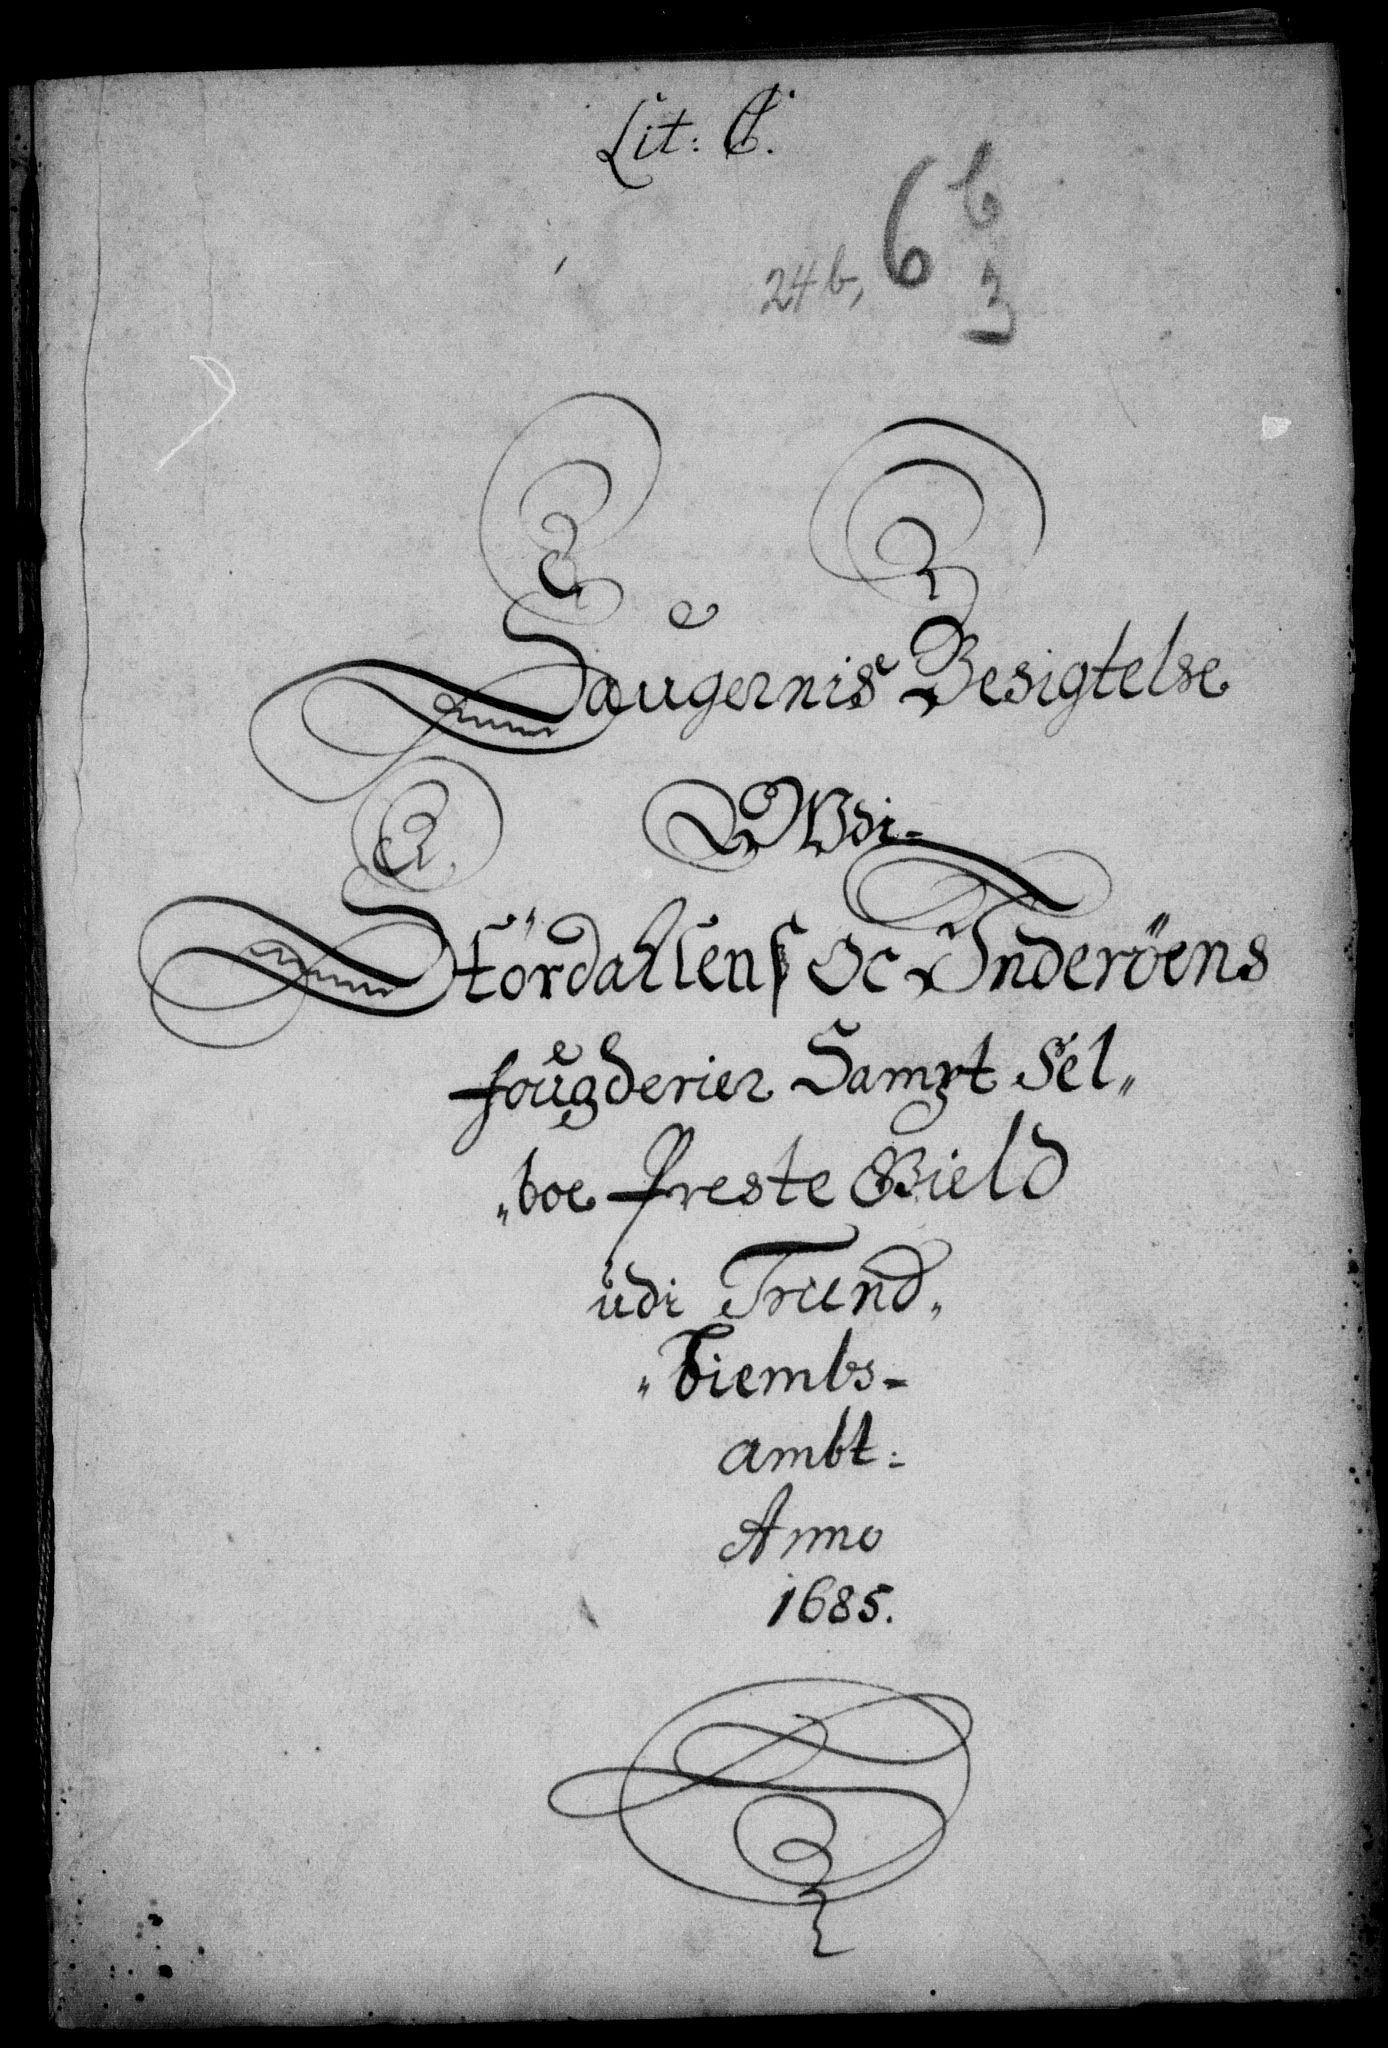 Lit: C.
6 b
24 b, 3
Saugernis Besigtelse
Udi-
Stördallens Oc Inderöens
fougderier Sampt Sel„
„boe Preste Gield
udi Trund„
„hiembs-
ambt:
Anno
1685.